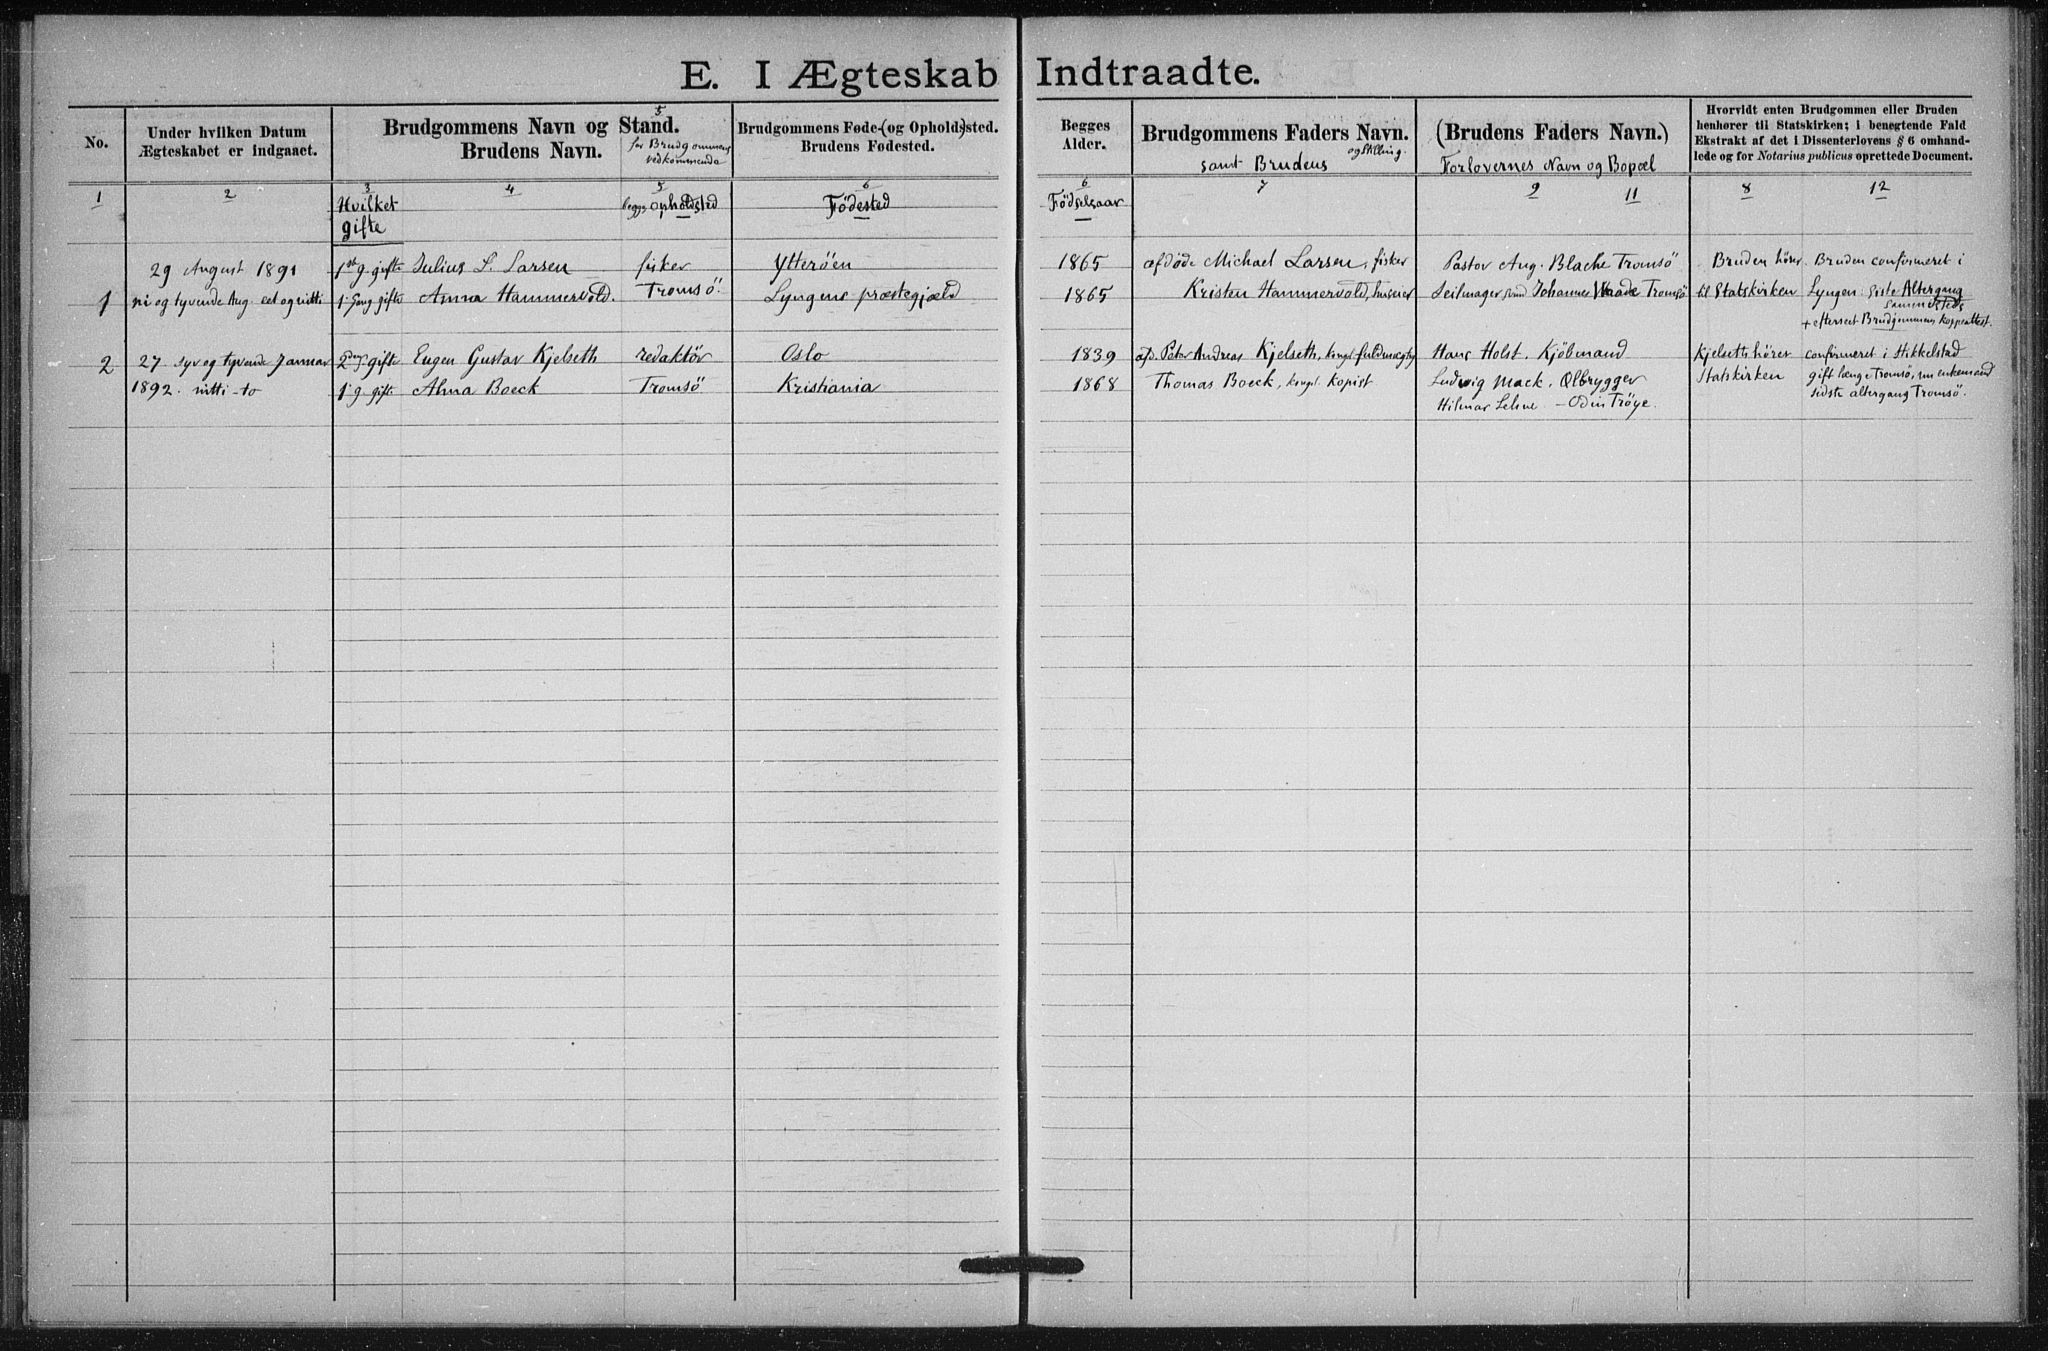 E. I Ægteskab Indtraadte.
No.
Under hvilken Datum
Ægteskabet er indgaaet.
Brudgommens Navn og Stand.
Brudens Navn.
5
for Brudgommens
vedkommende
Brudgommens Føde-(og Opholds)sted.
Brudens Fødested.
Begges
Alder.
Brudgommens Faders Navn.
og Stilling.
samt Brudens
(Brudens Faders Navn.)
Forlovernes Navn og Bopæl
Hvorvidt enten Brudgommen eller Bruden
henhører til Statskirken; i benegtende Fald
Ekstrakt af det i Dissenterlovens § 6 omhand-
lede og for Notarius publicus oprettede Document.
1 2 3 4 5 6 6 7 9 11 8 12
Hvilket begges opholdsted Fødested Fødselsaar
gifte
29 August 1891 1ste g. gifte Julius L. Larsen fisker Ytterøen 1865 afdøde Michael Larsen, fisker Pastor Aug. Blache Tromsö Bruden hører Bruden confirmeret i
1 ni og tyvende Aug. eet og nitti 1. Gang gifte Anna Hammervold. Tromsö. Lyngens præstegjæld 1865 Kristen Hammervold, huseier Seilmager svend Johannes Waade Tromsö til Statskirken Lyngen siste Altergang
sammesteds
+ efterseet Brudgommens koppeattest.
2 27 syv og tyvende Januar 2den g gifte Eugen Gustav Kjelseth redaktör Oslo 1839 afd. Peter Andreas Kjelseth, kongl. fuldmægtig Hans Holst. Kjöbmand Kjelseth hører confirmeret i Stikkelstad
1892. nitti-to 1. g gifte Alma Boeck Tromsö Kristiania 1868 Thomas Boeck, kongl. kopist Ludwig Mack. Ølbrygger Statskirken gift længe i Tromsö, nu enkemand
Hilmar Lehne - Odin Tröye. sidste altergang Tromsö.